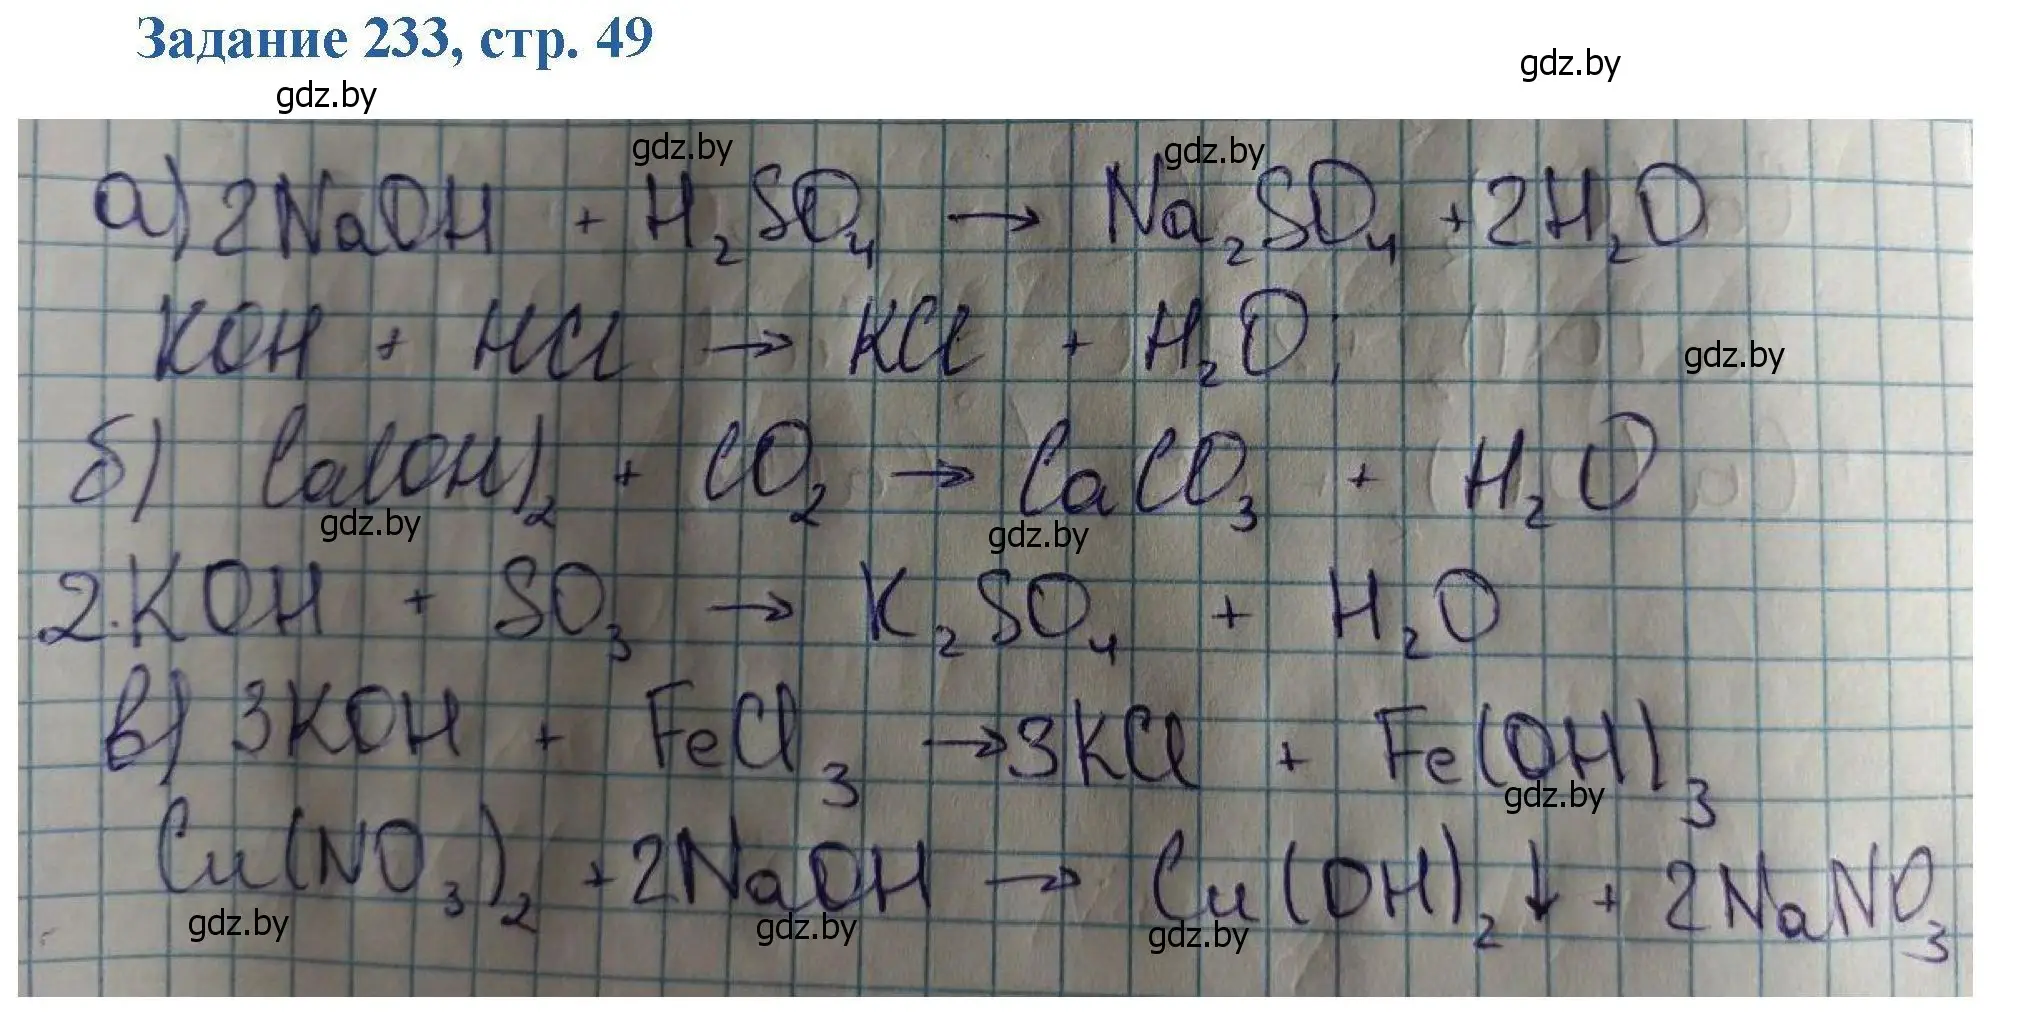 Задание 233, стр. 49
gdz.by
gdz.by
gdz.by
gdz.by
а) 2NaOH + H₂SO₄ → Na₂SO₄ + 2H₂O
KOH + HCl → KCl + H₂O;
gdz.by
б) Ca(OH)₂ + CO₂ → CaCO₃ + H₂O
gdz.by
gdz.by
2.KOH + SO₃ → K₂SO₄ + H₂O
в) 3KOH + FeCl₃ → 3KCl + Fe(OH)₃
gdz.by
Cu(NO₃)₂ + 2NaOH → Cu(OH)₂↓ + 2NaNO₃
gdz.by
gdz.by
gdz.by